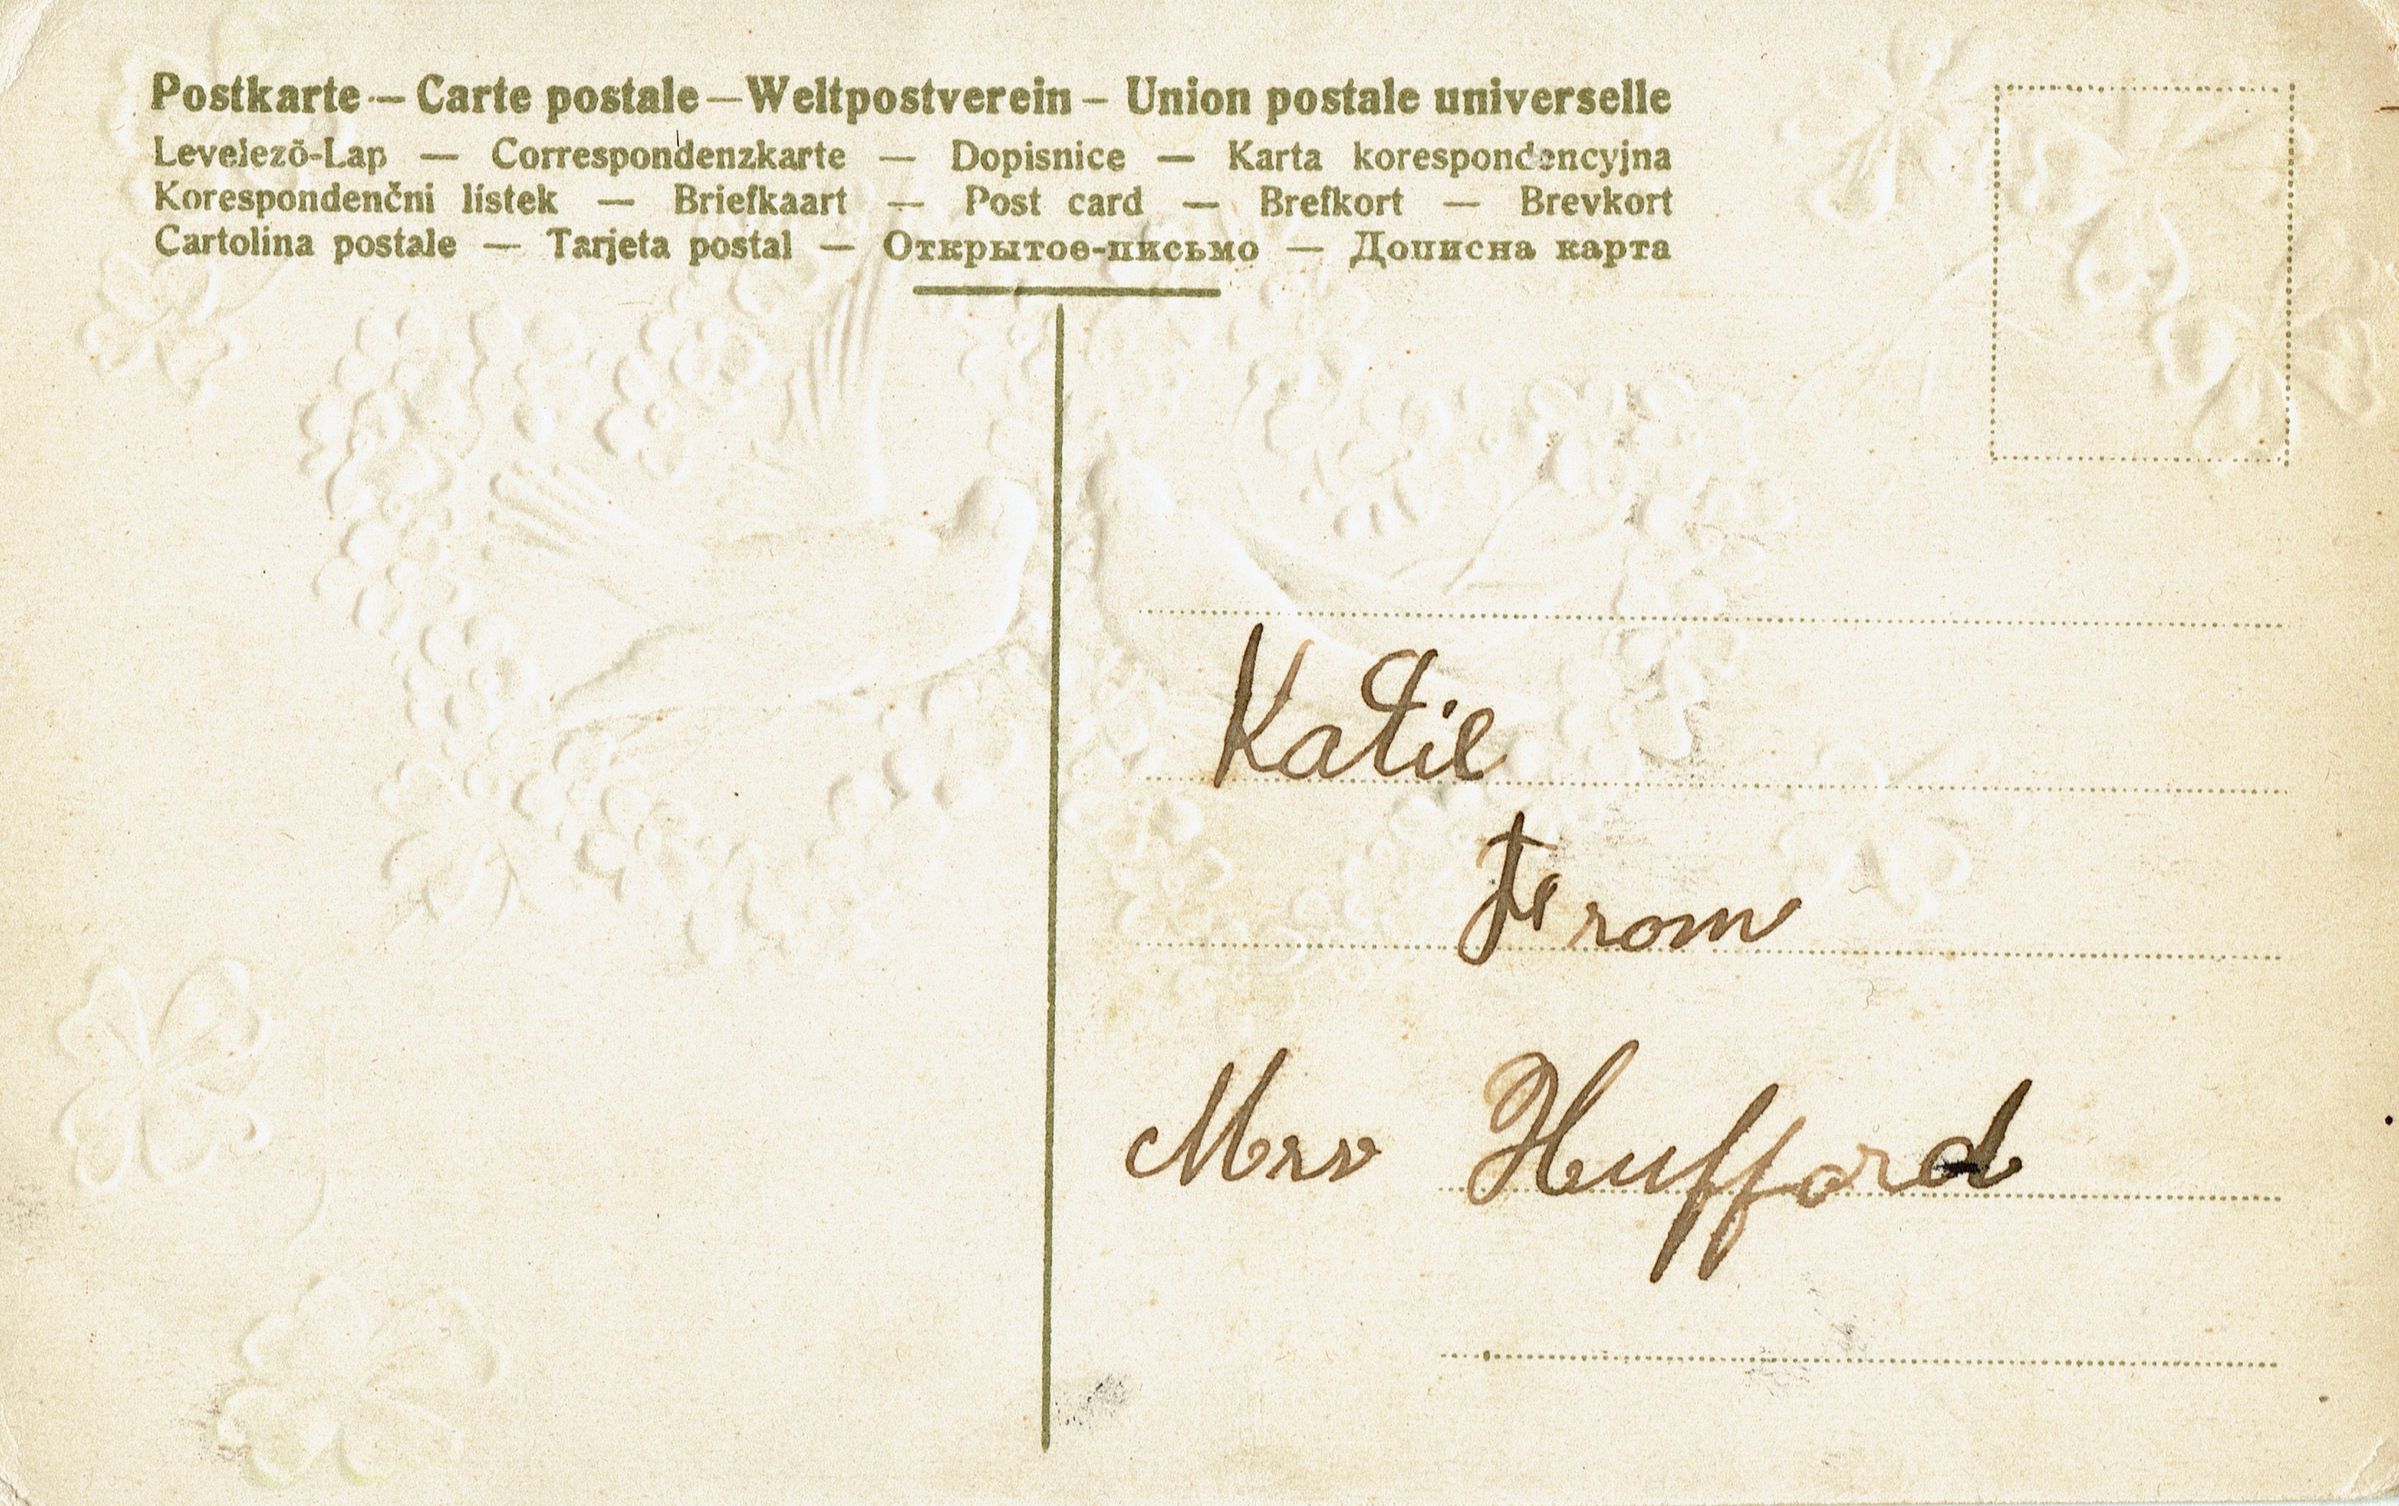 Postkarte – Carte postale – Weltpostverein – Union postale universelle
Levelező-Lap — Correspondenzkarte — Dopisnice — Karta korespondencyjna
Korespondenčni lístek — Briefkaart — Post card — Brefkort — Brevkort
Cartolina postale — Tarjeta postal — Открытое-письмо — Дописна карта
Katie
From
Mrs Hufford